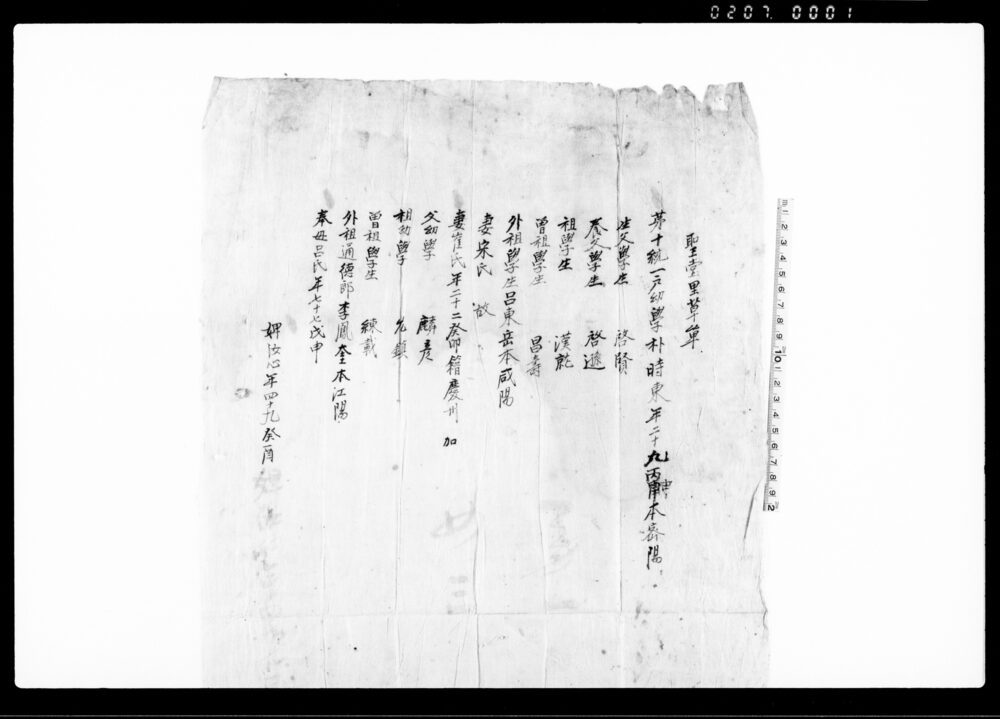 0207. 0001
聖堂里草單
第十統一戶幼學朴時東年二十九丙申本密陽
生父學生 啓賢
養父學生 啓遜
祖學生 漢
曾祖學生 昌壽
外祖學生呂東岳本咸陽
妻宋氏 故
妻崔氏年二十二癸卯籍慶州 加
父幼學 麟彦
祖幼學 允鎮
曾祖學生 練載
外祖通德郎李鳳奎本江陽
奉母呂氏年七十七戊申
婢汝心年四十九癸酉